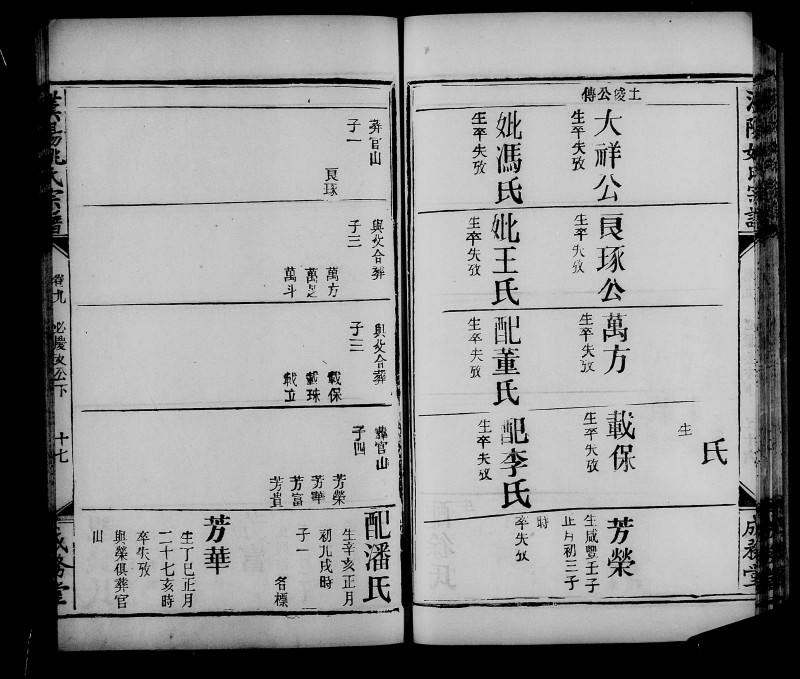 土陵公傳
大祥公
生卒失攷
妣馮氏
生卒失攷
良琢公
生卒失攷
妣王氏
生卒失攷
萬方
生卒失攷
配董氏
生卒失攷
氏
生
載保
生卒失攷
配李氏
生卒失攷
芳榮
生咸豐壬子
正月初三子
時
卒失攷
成務堂
葬官山
子一
良琢
與攷合葬
子三
萬方
萬斗
與攷合葬
子三
載保
載珠
載立
葬官山
子四
芳榮
芳華
芳富
芳貴
配潘氏
生辛亥正月
初九戌時
子一
名標
芳華
生丁巳正月
二十七亥時
卒失攷
與榮俱葬官
山
姚氏宗譜
卷九
必慶攷公下
十七
成務堂